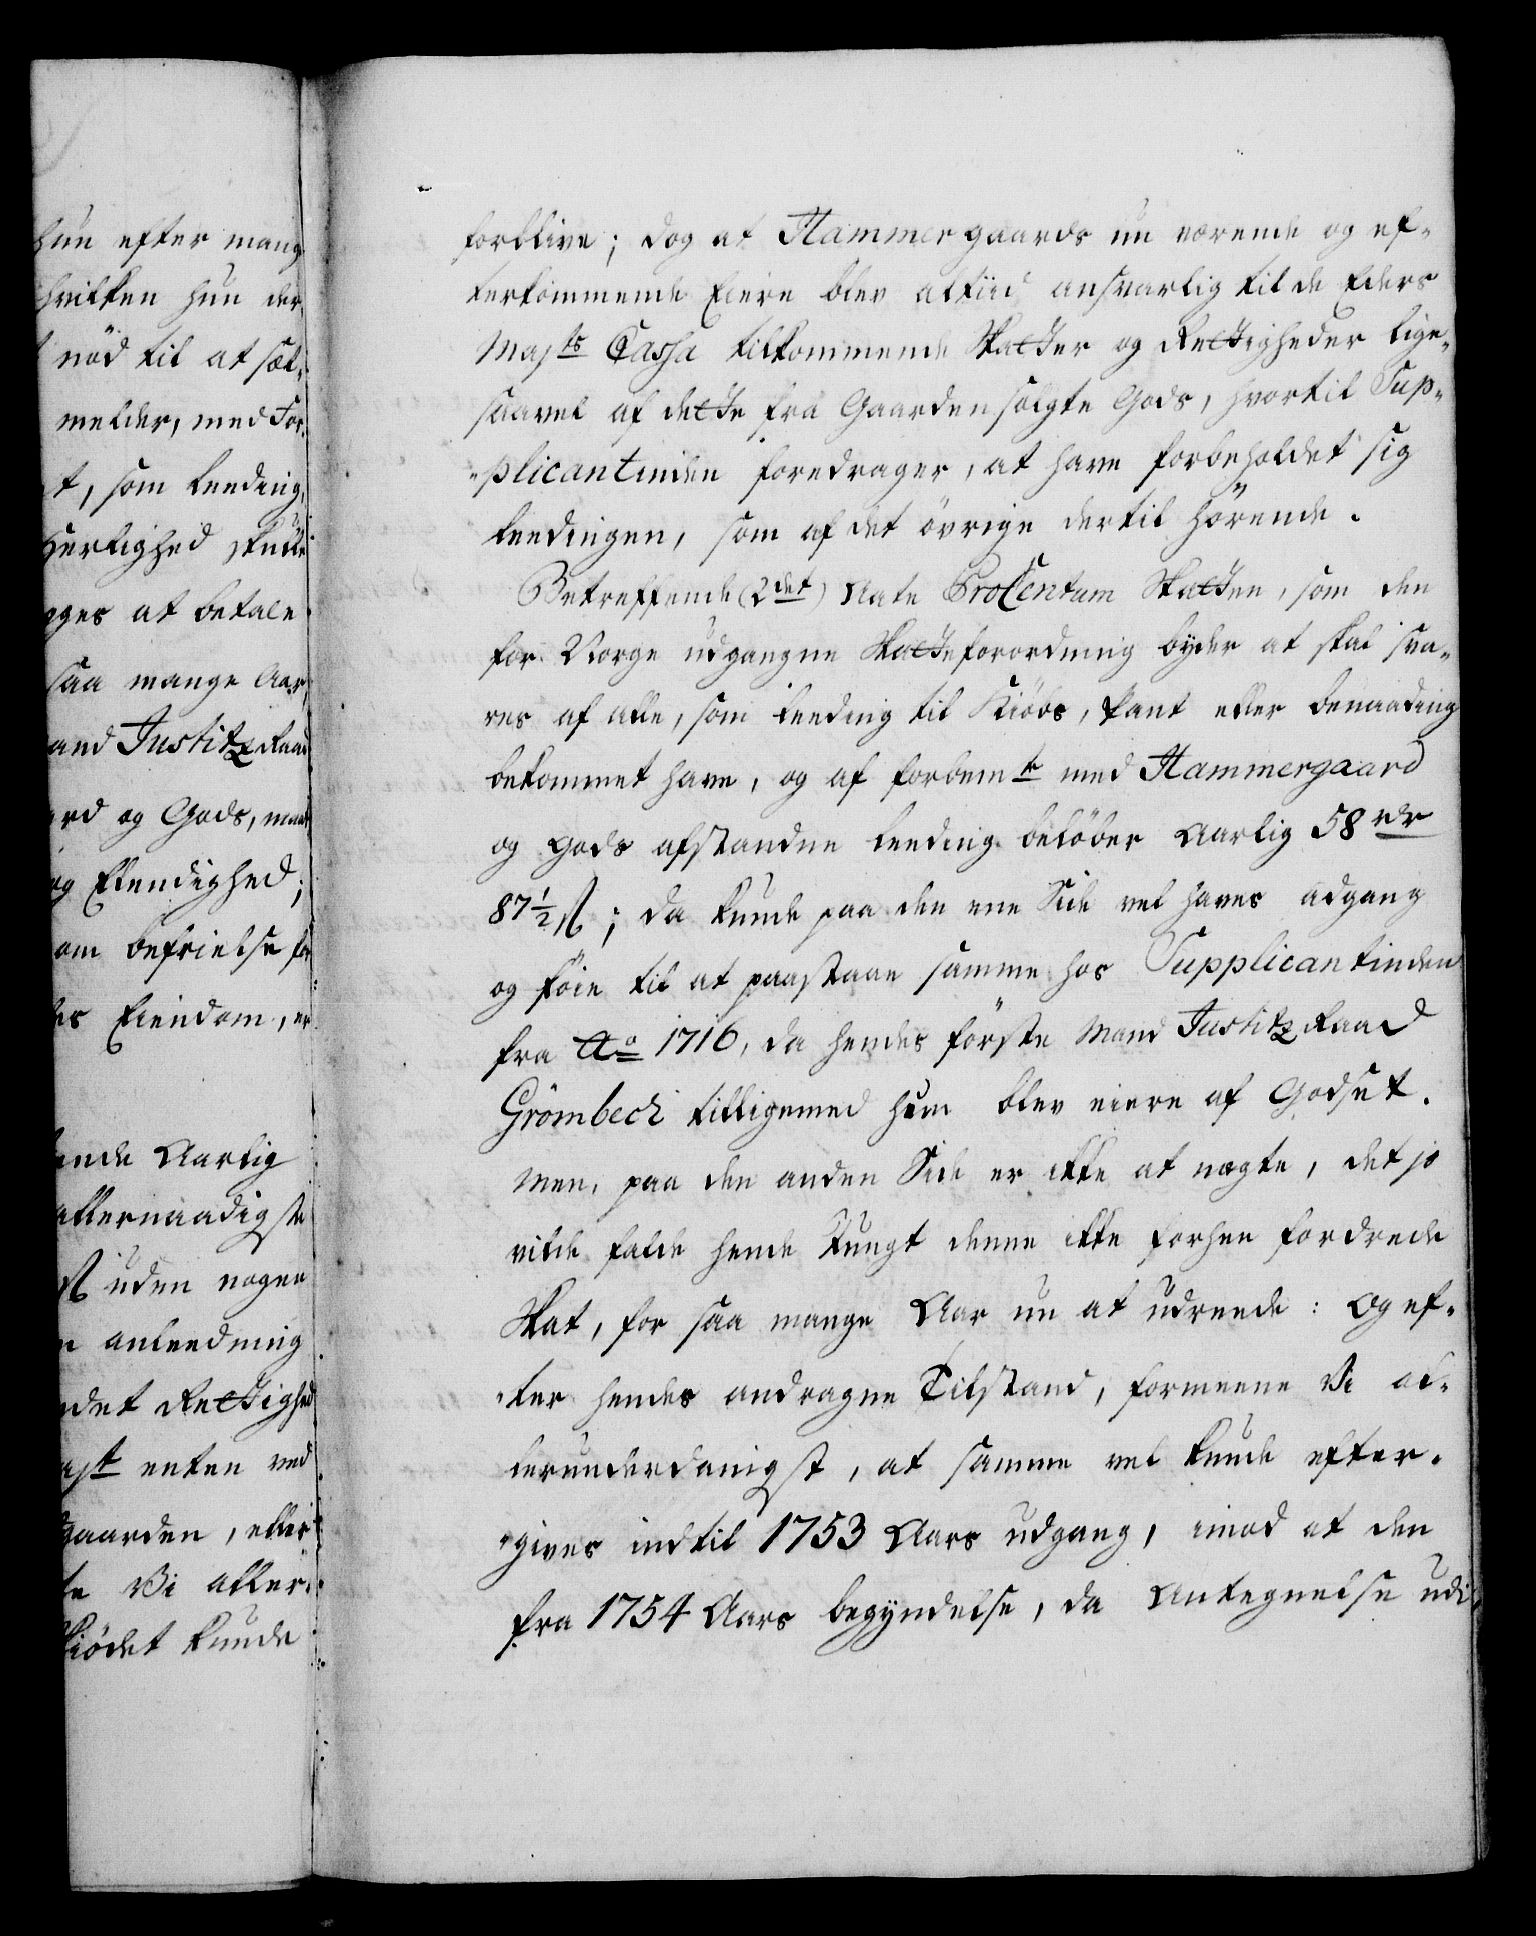 hun efter mang
hvilken hun der
nöd til at sæl-
melder, med For-
t, som Leeding,
Herlighed skulle
gges at betale
saa mange Aar,
and Justitz Raad
ard og Gods, maat
og Elendighed;
om befrielse for
es Eiendom, er
ende Aarlig
allernaadigste
ß uden nogen
n anleedning
ndet Rettighed
ajt enten ved
gaarden, eller
te Vi aller-
kiödet kunde
forblive; dog at Hammergaards nu værende og ef-
terkommende Eiere blev altiid ansvarlig til de Eders
Majts Cassa tilkommende Skatter og Rettigheder lige-
saavel af dette fra Gaarden solgte Gods, hvortil Sup-
plicantinden foredrager, at have forbeholdet sig
Leedingen, som af det övrige dertil hörende.
Betreffende (2det) Aate ProCentum Skatten, som den
for Norge udgangne Skatteforordning byder at skal sva-
res af alle, som Leeding til Kiöbs, Pant eller benaading
bekommet have, og af forbemte med Hammergaard
og Gods afstandne Leeding belöber Aarlig 58 rdr
87½ ß; da kunde paa den ene Side vel haves adgang
og föie til at paastaae samme hos Supplicantinden
fra Ao 1716, da hendes förste Mand Justitz Raad
Grömbech tilligemed hun blev eiere af Godset.
Men, paa den anden Side er ikke at nægte, det jo
vilde falde hende tungt denne ikke forhen fordrede
Skat, for saa mange Aar nu at udreede: Og ef-
ter hendes andragne Tilstand, formeene Vi al-
lerunderdanigst, at samme vel kunde efter-
gives indtil 1753 Aars udgang, imod at den
fra 1754 Aars begyndelse, da Antegnelse udi